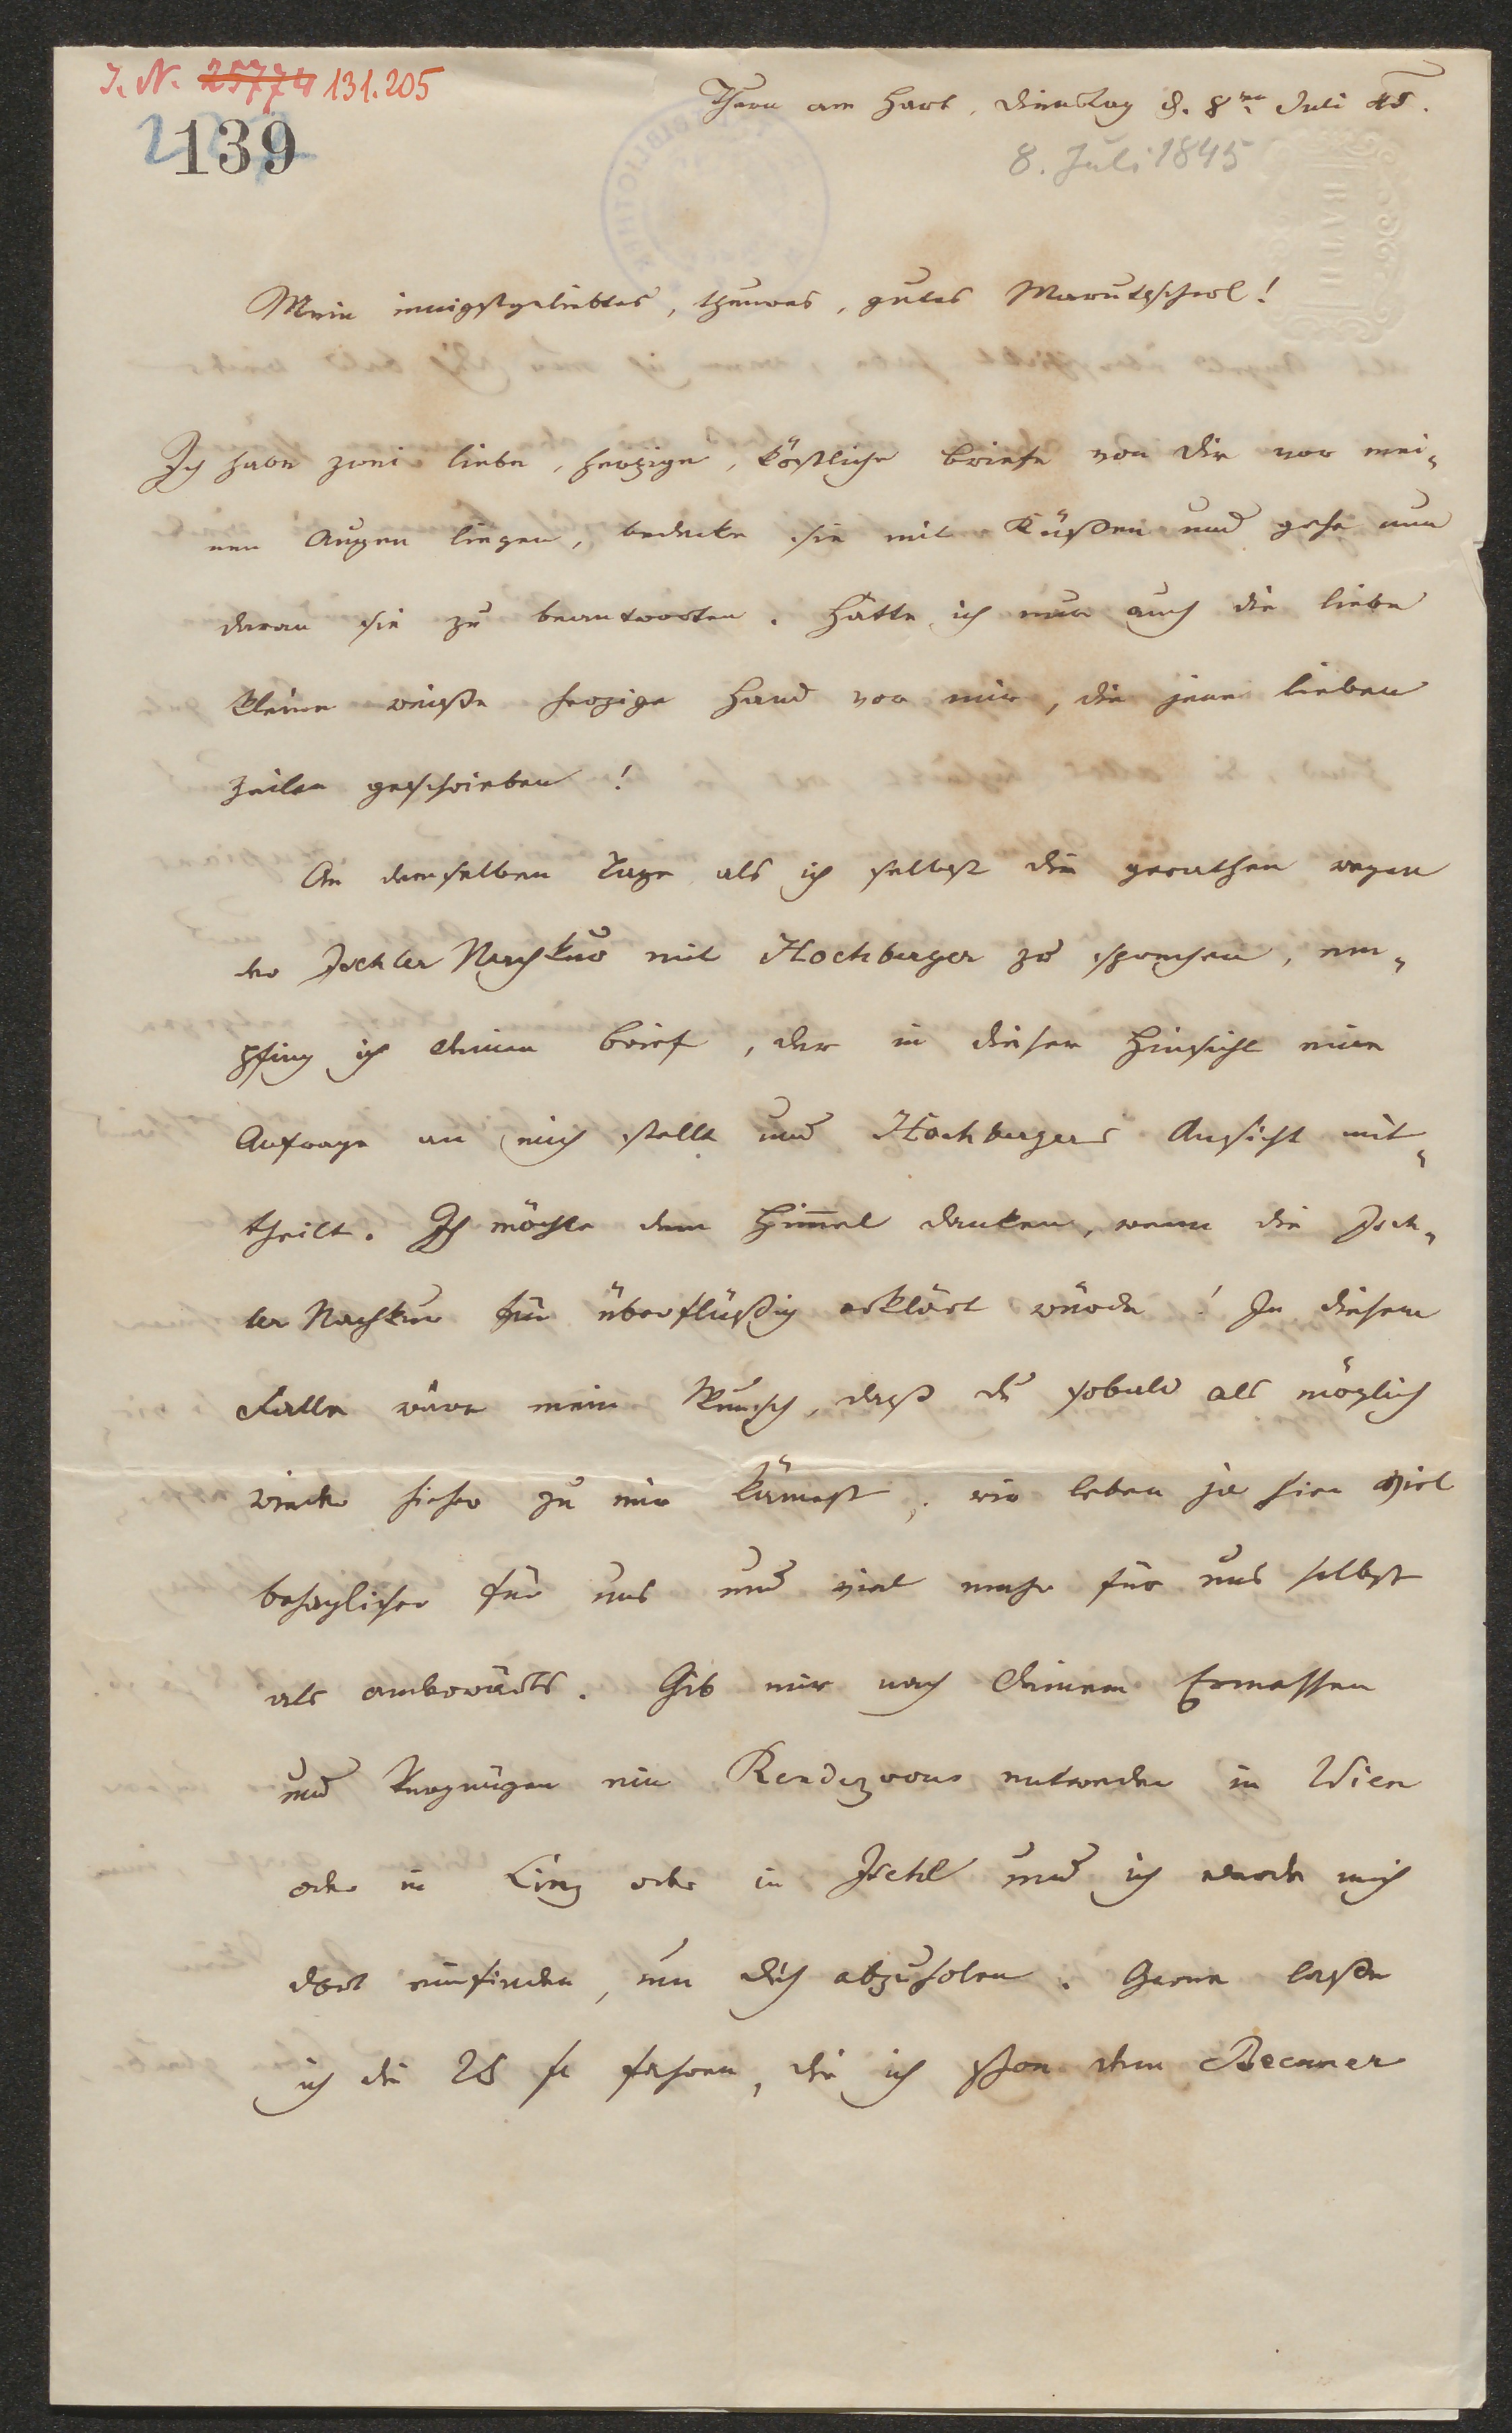 I. N. 25774 131.205
139
Thurn am Hart, Dienstag d. 8ten Juli 45.
8. Juli 1845
BATH
Mein innigstgeliebtes, theures, gutes Marutscherl!
Ich habe zwei liebe, herzige, köstliche Briefe von Dir vor mei-
nen Augen liegen, bedecke sie mit Küßen und gehe nun
daran sie zu beantworten. Hätte ich nur auch die liebe
kleine weiße herzige Hand vor mir, die jene lieben
Zeilen geschrieben!
An demselben Tage als ich selbst Dir gerathen wegen
der Ischler Nachkur mit Hochberger zu sprechen, em-
pfing ich Deinen Brief, der in dieser Hinsicht eine
Anfrage an mich stellt und Hochbergers Ansicht mit-
theilt. Ich möchte dem Himmel danken, wenn die Isch-
ler Nachkur für überflüßig erklärt würde! In diesem
Falle wäre mein Wunsch, daß Du sobald als möglich
wieder hieher zu mir kämest, wir leben ja hier viel
behaglicher für uns und viel mehr für uns selbst
als anderwärts. Gib mir nach Deinem Ermessen
und Vergnügen ein Rendezvous entweder in Wien
oder in Linz oder in Ischl und ich werde mich
dort einfinden, um Dich abzuholen. Gerne laße
ich die 25 fl fahren, die ich schon dem